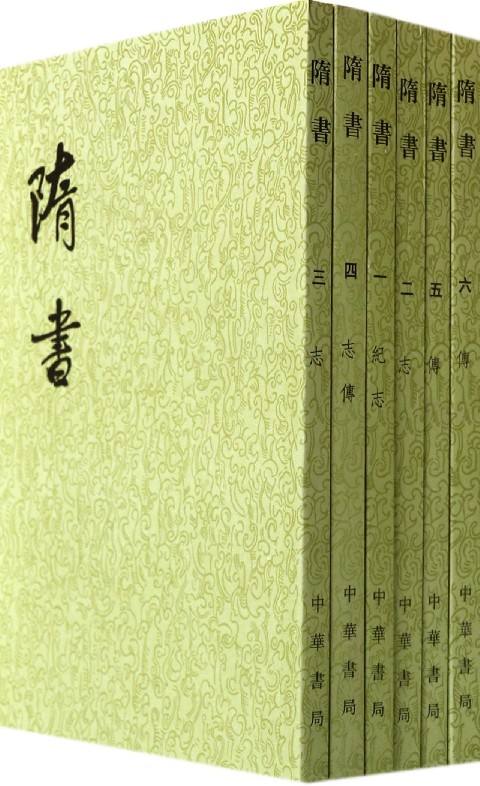 隋書
隋書 三 志 中華書局
隋書 四 志傳 中華書局
隋書 一 紀志 中華書局
隋書 二 志 中華書局
隋書 五 傳 中華書局
隋書 六 傳 中華書局